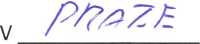 V PRAZE